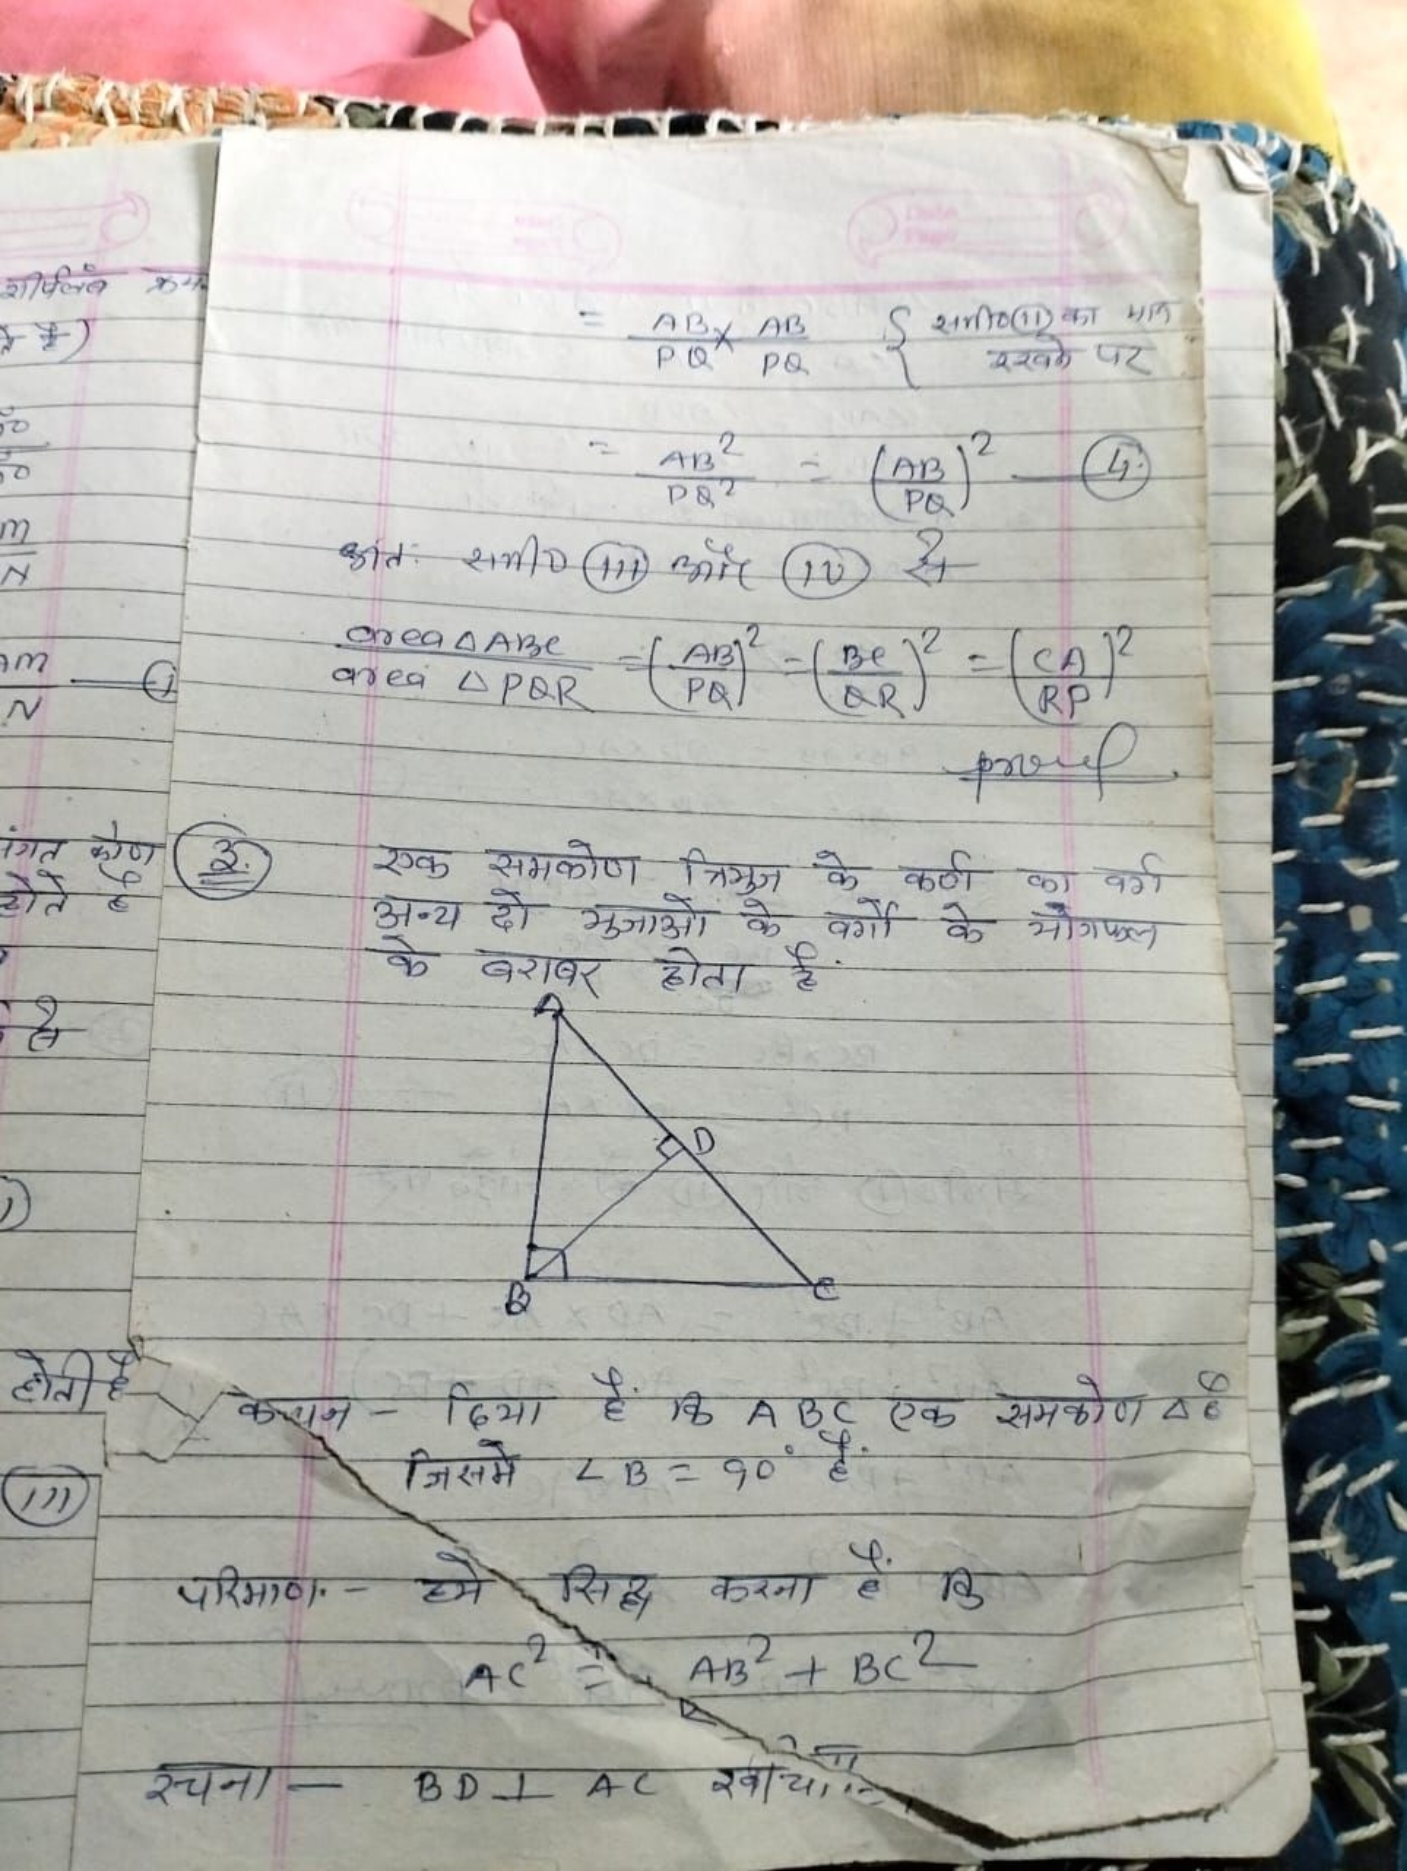 शीर्षलंब
है)
m
N
AM
N
(i)
संगत कोण
होते है
से
होती है
(iii)
= AB/PQ × AB/PQ { समी० (ii) का मान
रखने पर
= AB²/PQ² = (AB/PQ)² — (4.)
अतः समी० (iii) और (iv) से
area △ABC/area △PQR = (AB/PQ)² = (BC/QR)² = (CA/RP)²
proved
3. एक समकोण त्रिभुज के कर्ण का वर्ग
अन्य दो भुजाओं के वर्गों के योगफल
के बराबर होता है.
A
D
B C
कथन - दिया है कि ABC एक समकोण △ है
जिसमें ∠B = 90° है.
परिमाण - हमे सिद्ध करना है कि
AC² = AB² + BC²
रचना - BD ⊥ AC